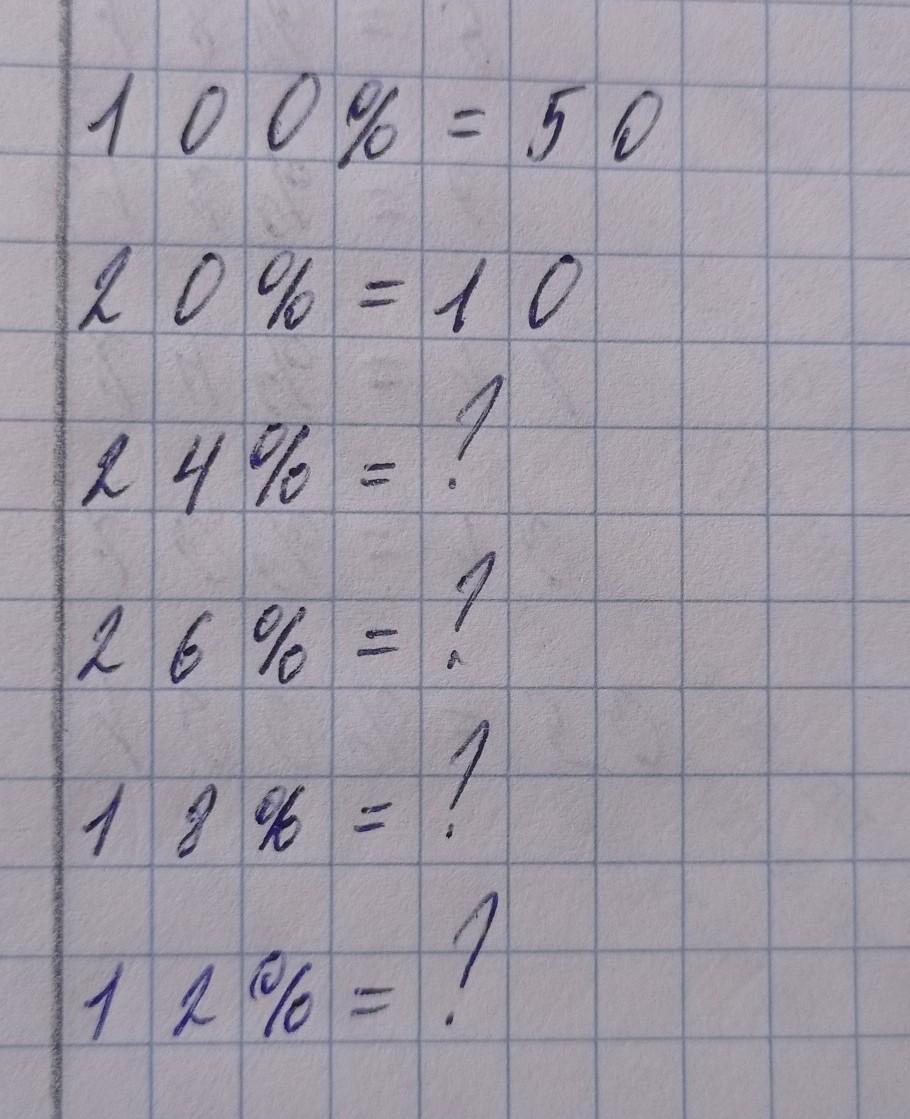 100% = 50
20% = 10
24% = ?
26% = ?
18% = ?
12% = ?